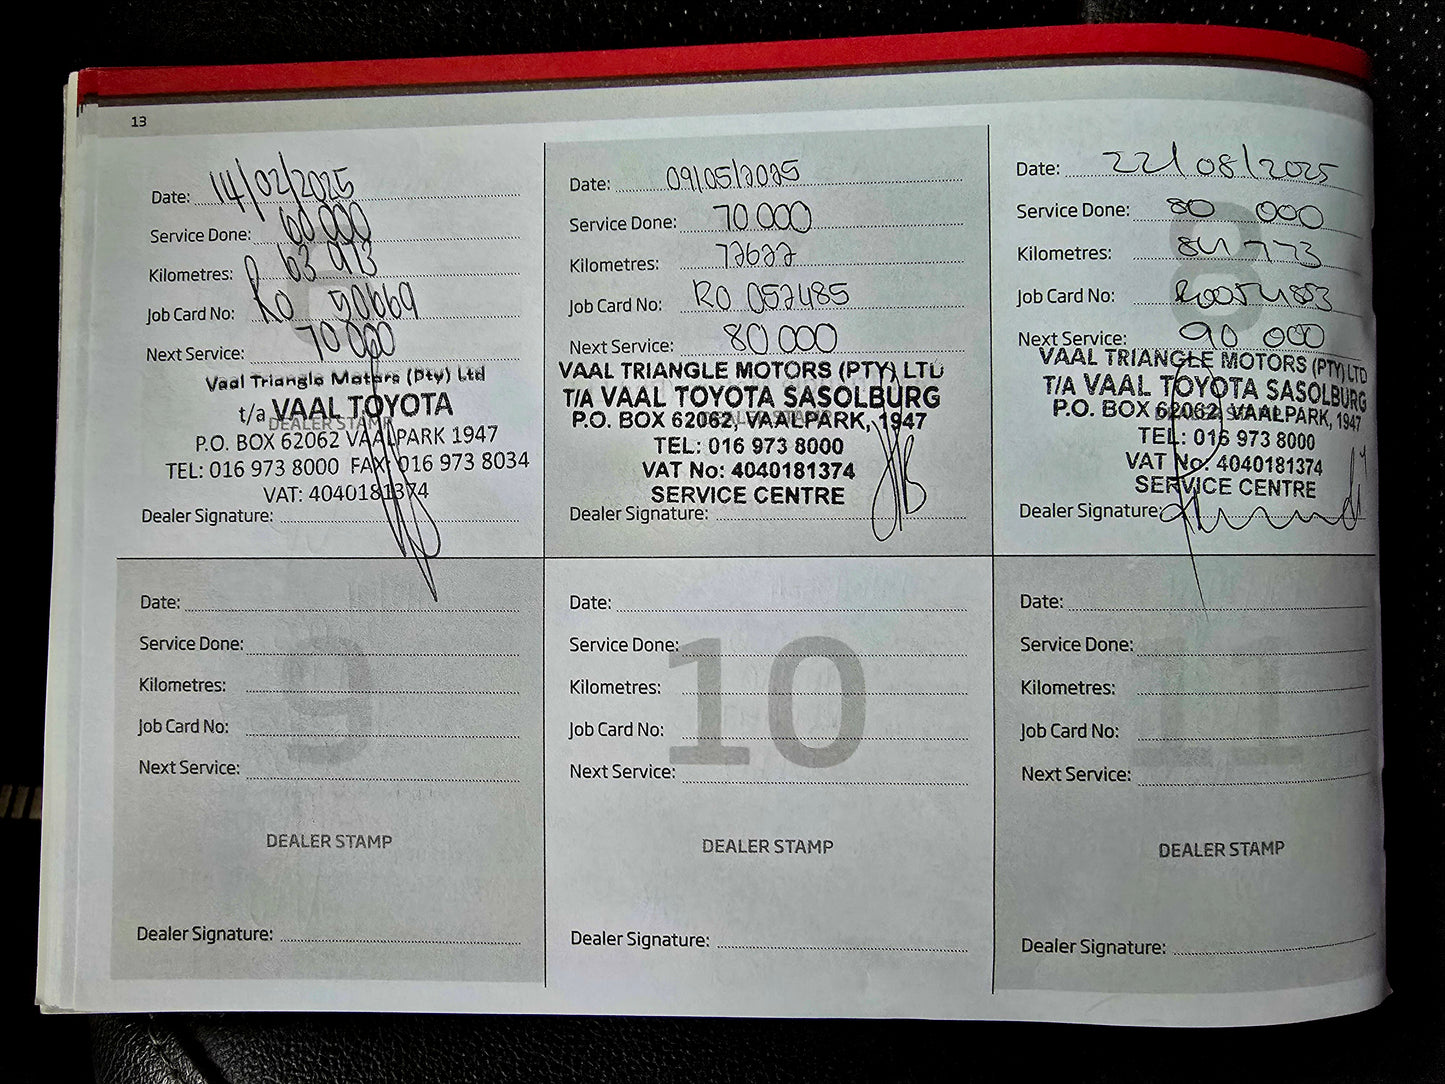 13
Date: 14/02/2025
Service Done: 60 000
Kilometres: 63 973
Job Card No: RO 50669
Next Service: 70 000
Vaal Triangle Motors (Pty) Ltd
t/a VAAL TOYOTA
DEALER STAMP
P.O. BOX 62062 VAALPARK 1947
TEL: 016 973 8000 FAX: 016 973 8034
VAT: 4040181374
Dealer Signature:
Date: 09/05/2025
Service Done: 70 000
Kilometres: 72622
Job Card No: RO 052485
Next Service: 80 000
VAAL TRIANGLE MOTORS (PTY) LTD
T/A VAAL TOYOTA SASOLBURG
P.O. BOX 62062, VAALPARK, 1947
DEALER STAMP
TEL: 016 973 8000
VAT No: 4040181374
SERVICE CENTRE
Dealer Signature:
8
Date: 22/08/2025
Service Done: 80 000
Kilometres: 84 773
Job Card No: R0054883
Next Service: 90 000
VAAL TRIANGLE MOTORS (PTY) LTD
T/A VAAL TOYOTA SASOLBURG
P.O. BOX 62062, VAALPARK, 1947
TEL: 016 973 8000
VAT No: 4040181374
SERVICE CENTRE
Dealer Signature:
9
Date:
Service Done:
Kilometres:
Job Card No:
Next Service:
DEALER STAMP
Dealer Signature:
10
Date:
Service Done:
Kilometres:
Job Card No:
Next Service:
DEALER STAMP
Dealer Signature:
11
Date:
Service Done:
Kilometres:
Job Card No:
Next Service:
DEALER STAMP
Dealer Signature: